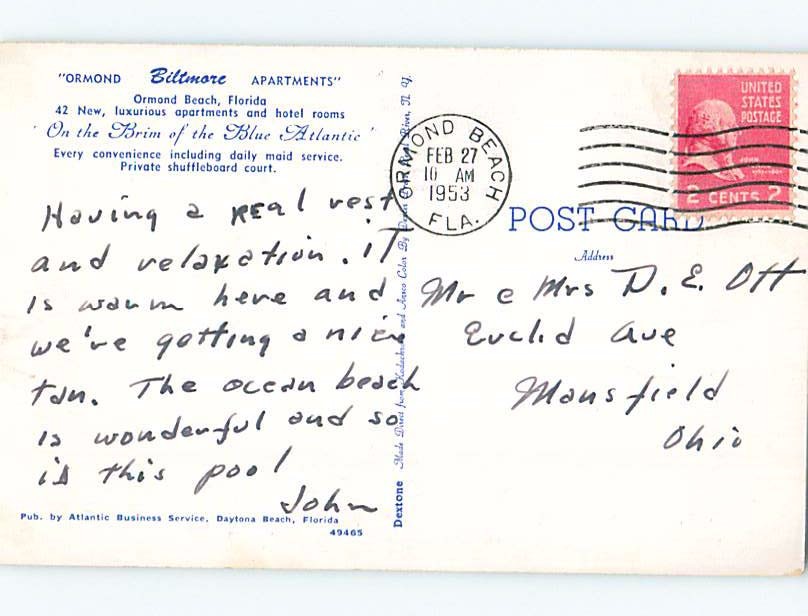 "ORMOND Biltmore APARTMENTS"
Ormond Beach, Florida
42 New, luxurious apartments and hotel rooms
"On the Brim of the Blue Atlantic"
Every convenience including daily maid service.
Private shuffleboard court.
Having a REAl rest
and relaxation. iT
Is warm here and
we're getting a nice
tan. The ocean beach
Is wonderful and so
is this pool
John
Pub. by Atlantic Business Service, Daytona Beach, Florida
49465
Dextone Made Direct from Kodachrome and Ansco Color By River, N. Y.
ORMOND BEACH
FEB 27
10 AM
1953
FLA.
UNITED
STATES
POSTAGE
JOHN
2 CENTS 2
POST CARD
Address
Mr & Mrs D. E. Ott
Euclid Ave
Mansfield
Ohio